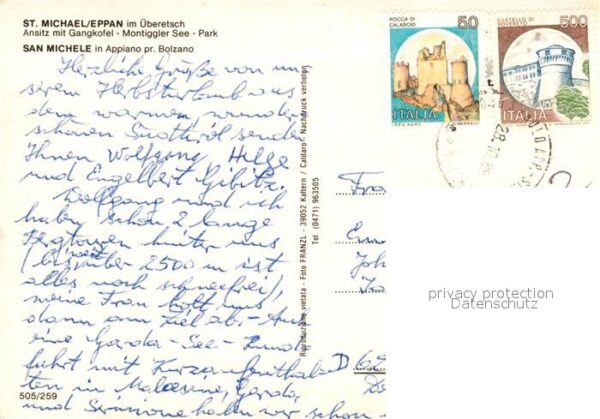 ST. MICHAEL/EPPAN im Überetsch
Ansitz mit Gangkofel - Montiggler See - Park
SAN MICHELE in Appiano pr. Bolzano
Herzliche Grüße von un-
serem Herbsturlaub aus
dem warmen, wunder
schönen Südtirol senden
Ihnen Wolfgang, Helge
und Engelbert
Wolfgang und ich
haben schon 2 lange
Bergtouren hinter uns
(bis weit über 2500 m ist
alles noch schneefrei),
meine Frau holt uns
dann am Ziel ab. - Auch
eine Garda-See-Rund
fahrt mit Kurzaufenthal
ten in Malcesine, Garda,
und Sirmione haben wir schon
505/259
Riproduzione vietata - Foto FRANZL - 39052 Kaltern / Caldaro - Nachdruck verboten
Tel. (0471) 963505
ROCCA DI
CALASCIO
50
ITALIA
CASTELLO DI
ROVERETO
500
ITALIA
Fra
Joh
D 6
privacy protection
Datenschutz